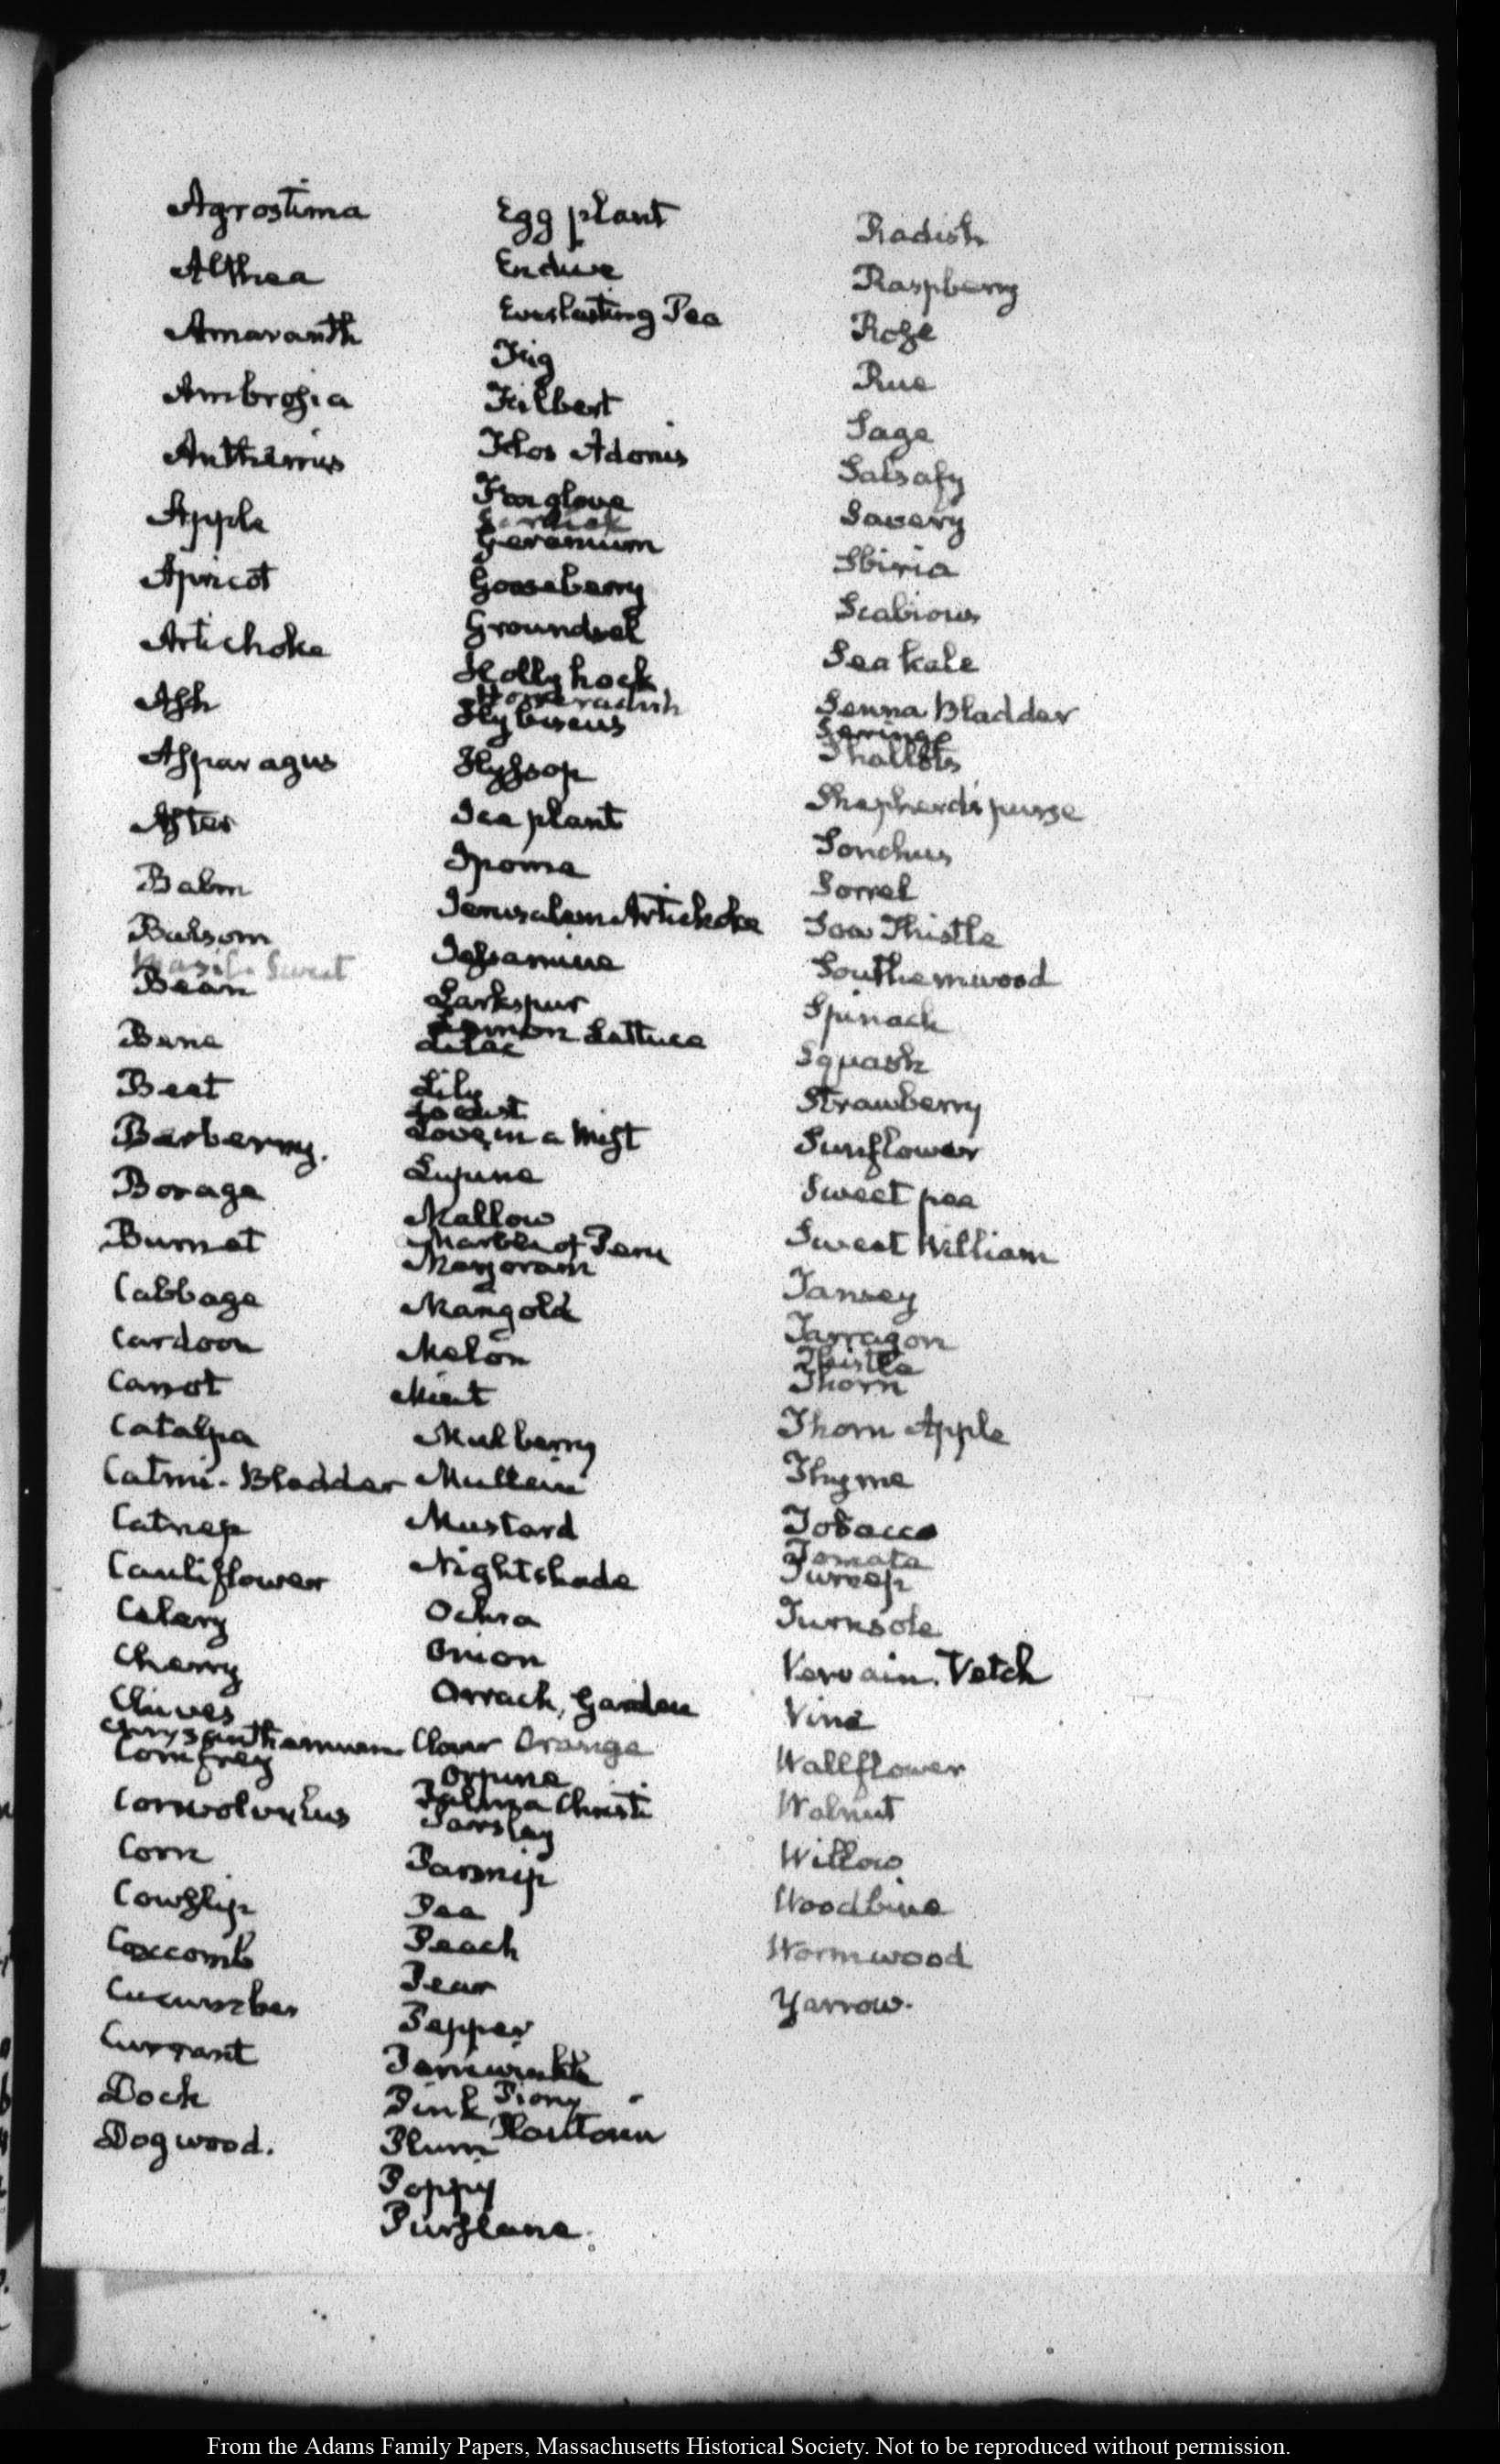 Agrostima
Althea
Amaranth
Ambrosia
Anthemis
Apple
Apricot
Artichoke
Ash
Asparagus
Aster
Balm
Balsom
Basil. Sweet
Bean
Bene
Beet
Barberry.
Borage
Burnet
Cabbage
Cardoon
Carrot
Catalpa
Catmi- Bladder
Catnep
Cauliflower
Celery
Cherry
Chives
Chrysanthemum
Comfrey
Convolvulus
Corn
Cowslip
Coxcomb
Cucumber
Currant
Dock
Dogwood.
Egg plant
Endive
Everlasting Pea
Fig
Filbert
Flos Adonis
Foxglove
Geranium
Gooseberry
Groundsel
Hollyhock
Horseradish
Hybiscus
Hyssop
Ice plant
Ipome
Jerusalem Artichoke
Jessamine
Larkspur
Lemon Lettuce
Lilac
Lily
Locust
Love in a Mist
Lupine
Mallow
Marvel of Peru
Marjoram
Marigold
Melon
Mint
Mulberry
Mullein
Mustard
Nightshade
Ochra
Onion
Orrach, Garden
Orange
Orpine
Palma Christi
Parsley
Parsnip
Pea
Peach
Pear
Pepper
Periwinkle
Pink Piony
Plum Plantain
Poppy
Purslane.
Radish
Raspberry
Rose
Rue
Sage
Salsafy
Savery
Sbiria
Scabious
Sea kale
Senna Bladder
Seringo
Shallots
Shepherds purse
Sonchus
Sorrel
Sow Thistle
Southernwood
Spinach
Squash
Strawberry
Sunflower
Sweet pea
Sweet William
Tansey
Tarragon
Thistle
Thorn
Thorn Apple
Thyme
Tobacco
Tomata
Turnep
Turnsole
Vervain. Vetch
Vine
Wallflower
Walnut
Willow
Woodbine
Wormwood
Yarrow.
From the Adams Family Papers, Massachusetts Historical Society. Not to be reproduced without permission.